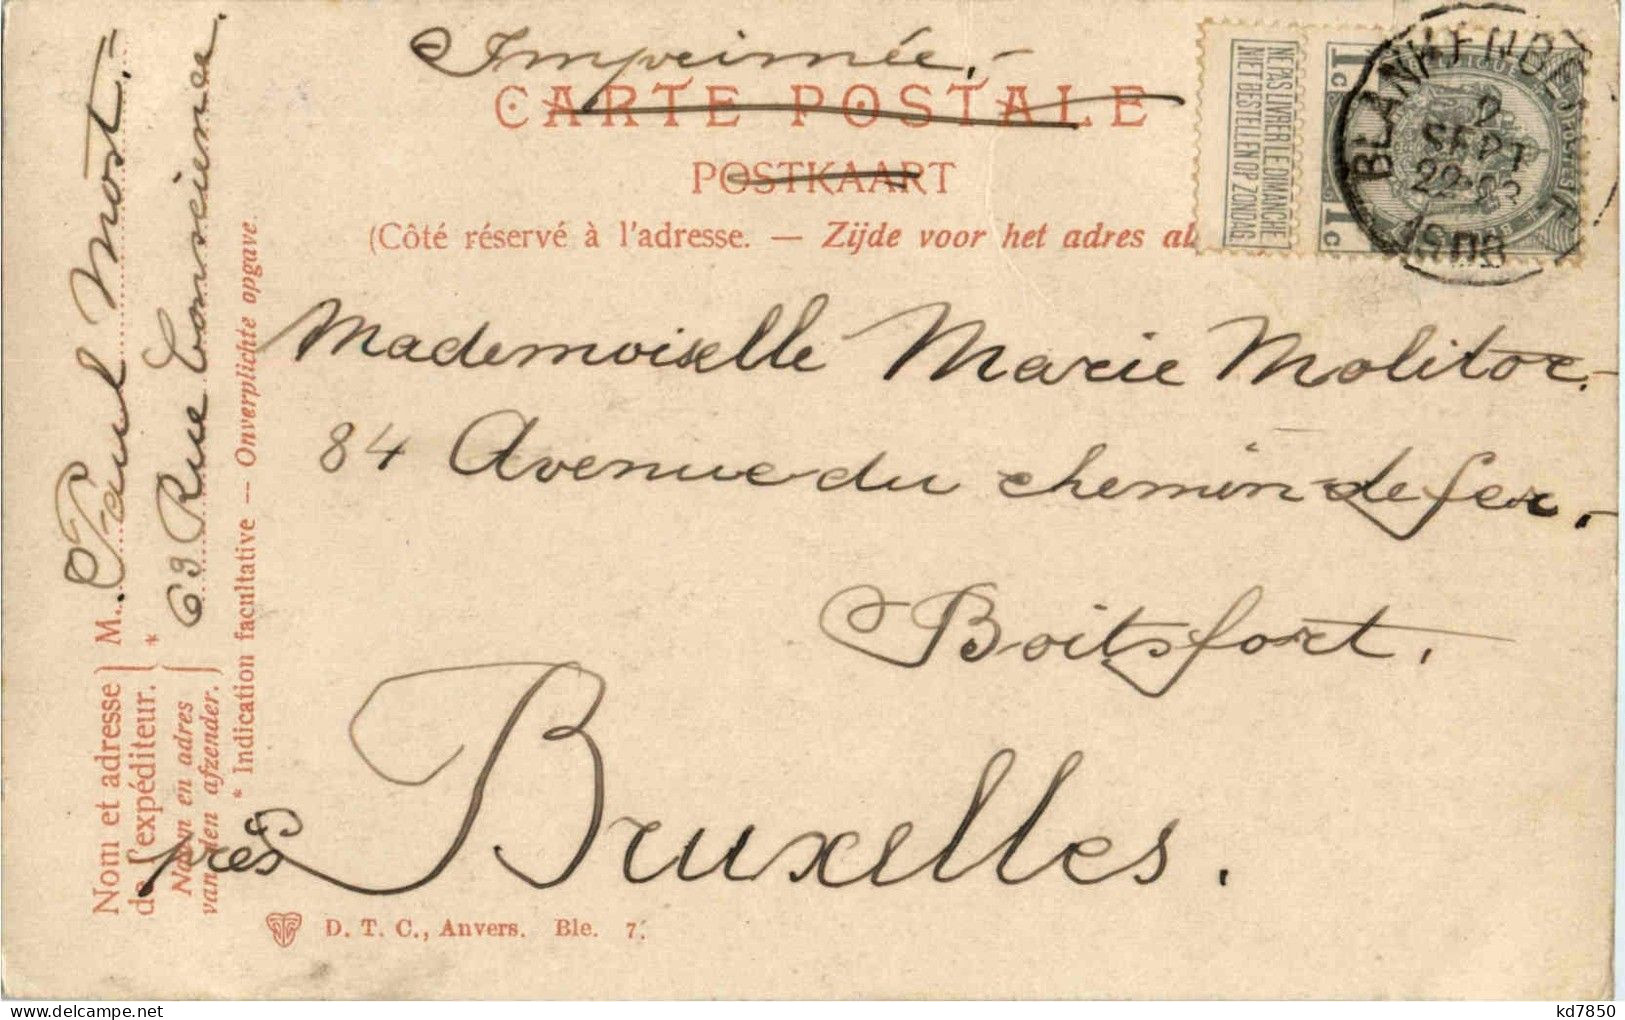 Imprimée.-
CARTE POSTALE
POSTKAART
(Côté réservé à l'adresse. — Zijde voor het adres al
NE PAS LIVRER LE DIMANCHE
NIET BESTELLEN OP ZONDAG
1c
1c
BLANKENBE
SEPT
1908
Mademoiselle Marie Molitor.-
84 Avenue du chemin de fer.-
Boitsfort.
près Bruxelles.
Nom et adresse
de l'expéditeur.
Naam en adres
van den afzender.
M. Paul Most.-
* 63 Rue Conscience.
* Indication facultative — Onverplichte opgave.
D. T. C., Anvers. Ble. 7.
kd7850